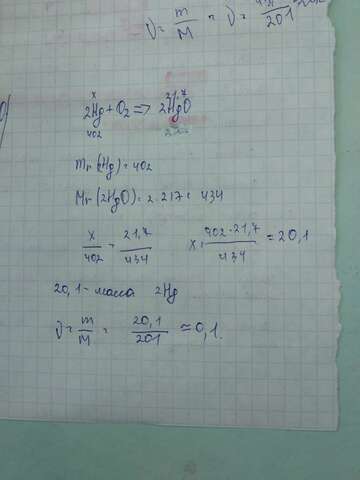 ν = m/M = ν = /201
x 21,7
2Hg + O₂ => 2HgO
402
Mr(2Hg) = 402
Mr(2HgO) = 2·217 = 434
x/402 = 21,7/434 x = 402·21,7/434 = 20,1
20,1 - масса 2Hg
ν = m/M = 20,1/201 ≈ 0,1.